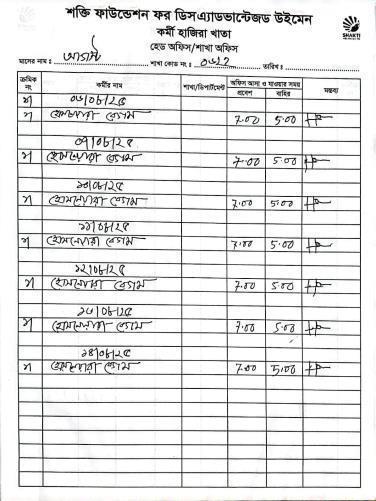 শক্তি ফাউন্ডেশন ফর ডিসএ্যাডভান্টেজড উইমেন
কর্মী হাজিরা খাতা
হেড অফিস/শাখা অফিস
SHAKTI
মাসের নাম : আগস্ট শাখা কোড নং : তারিখ :
ক্রমিক নং কর্মীর নাম শাখা/ডিপার্টমেন্ট অফিস আসা ও যাওয়ার সময় প্রবেশ বাহির মন্তব্য
১) হোসনেয়ারা বেগম 7.00 5.00
০৭/০৮/২৫
১) হোসনেয়ারা বেগম 7.00 5.00
১০/০৮/২৫
১) হোসনেয়ারা বেগম 7.00 5.00
১১/০৮/২৫
১) হোসনেয়ারা বেগম 7.00 5.00
১২/০৮/২৫
১) হোসনেয়ারা বেগম 7.00 5.00
১৩/০৮/২৫
১) হোসনেয়ারা বেগম 7.00 5.00
১৪/০৮/২৫
১) হোসনেয়ারা বেগম 7.00 5.00